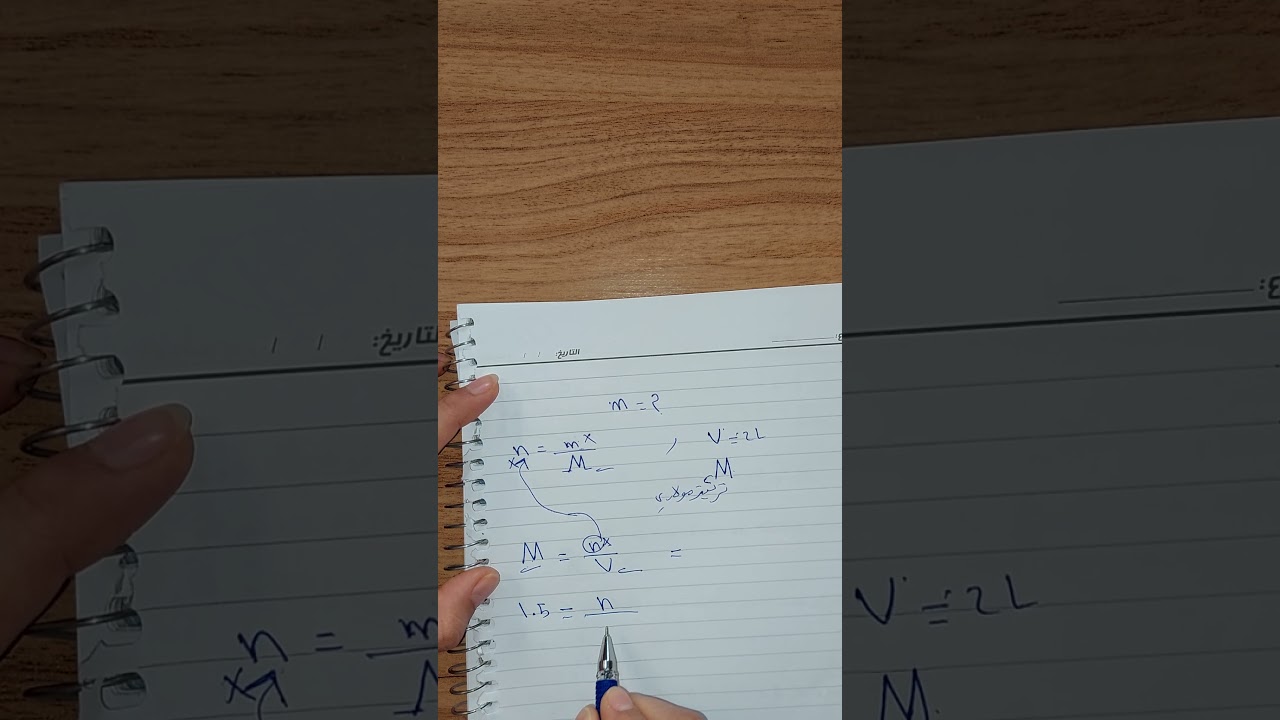 التاريخ: / /
m = ?
n = m x / M , V = 2L
x
M
تركيز مولاري
M = n x / V =
1.5 = n